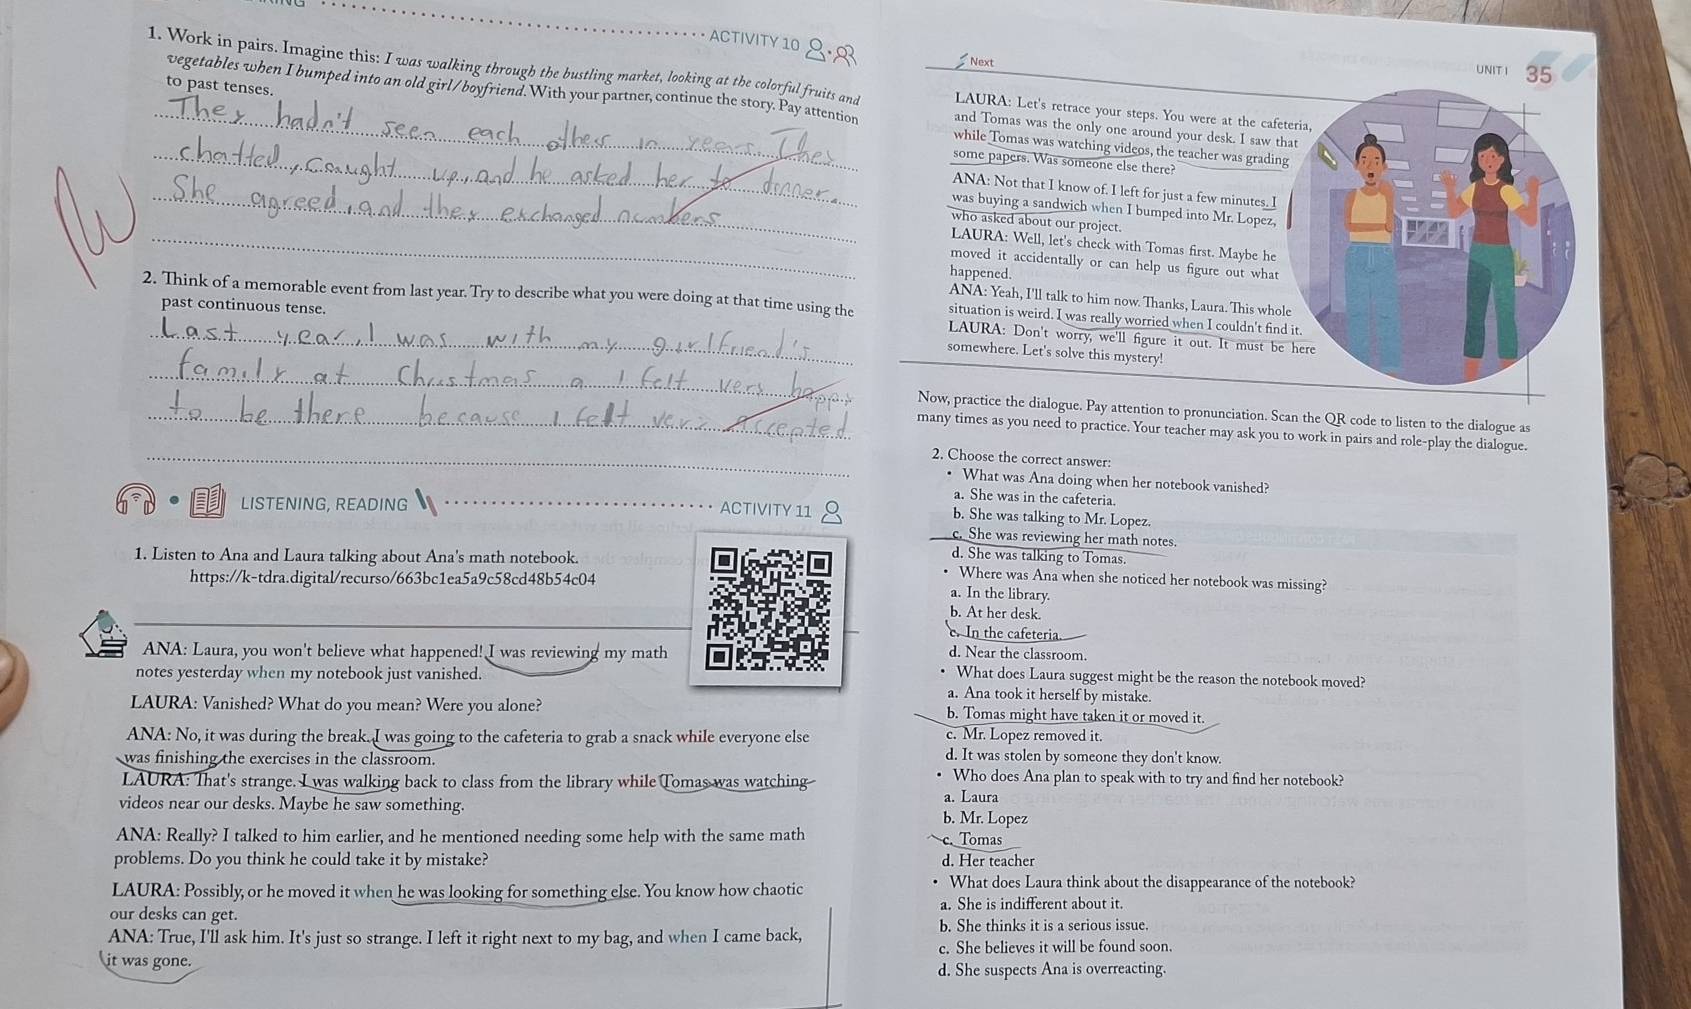 ACTIVITY 10
1. Work in pairs. Imagine this: I was walking through the bustling market, looking at the colorful fruits and
vegetables when I bumped into an old girl/boyfriend. With your partner, continue the story. Pay attention
to past tenses.
They hadn't seen each other in years. They
chatted, caught up, and he asked her to dinner.
She agreed, and they exchanged numbers
2. Think of a memorable event from last year. Try to describe what you were doing at that time using the
past continuous tense.
Last year, I was with my gurlfriend's
family at Christmas a I felt very happy
to be there because I felt very accepted
LISTENING, READING
ACTIVITY 11
1. Listen to Ana and Laura talking about Ana's math notebook.
https://k-tdra.digital/recurso/663bc1ea5a9c58cd48b54c04
ANA: Laura, you won't believe what happened! I was reviewing my math
notes yesterday when my notebook just vanished.
LAURA: Vanished? What do you mean? Were you alone?
ANA: No, it was during the break. I was going to the cafeteria to grab a snack while everyone else
was finishing the exercises in the classroom.
LAURA: That's strange. I was walking back to class from the library while Tomas was watching
videos near our desks. Maybe he saw something.
ANA: Really? I talked to him earlier, and he mentioned needing some help with the same math
problems. Do you think he could take it by mistake?
LAURA: Possibly, or he moved it when he was looking for something else. You know how chaotic
our desks can get.
ANA: True, I'll ask him. It's just so strange. I left it right next to my bag, and when I came back,
it was gone.
Next
UNIT I 35
LAURA: Let's retrace your steps. You were at the cafeteria,
and Tomas was the only one around your desk. I saw that
while Tomas was watching videos, the teacher was grading
some papers. Was someone else there?
ANA: Not that I know of. I left for just a few minutes. I
was buying a sandwich when I bumped into Mr. Lopez,
who asked about our project.
LAURA: Well, let's check with Tomas first. Maybe he
moved it accidentally or can help us figure out what
happened.
ANA: Yeah, I'll talk to him now. Thanks, Laura. This whole
situation is weird. I was really worried when I couldn't find it.
LAURA: Don't worry, we'll figure it out. It must be here
somewhere. Let's solve this mystery!
Now, practice the dialogue. Pay attention to pronunciation. Scan the QR code to listen to the dialogue as
many times as you need to practice. Your teacher may ask you to work in pairs and role-play the dialogue.
2. Choose the correct answer:
• What was Ana doing when her notebook vanished?
a. She was in the cafeteria.
b. She was talking to Mr. Lopez.
c. She was reviewing her math notes.
d. She was talking to Tomas.
• Where was Ana when she noticed her notebook was missing?
a. In the library.
b. At her desk.
c. In the cafeteria.
d. Near the classroom.
• What does Laura suggest might be the reason the notebook moved?
a. Ana took it herself by mistake.
b. Tomas might have taken it or moved it.
c. Mr. Lopez removed it.
d. It was stolen by someone they don't know.
• Who does Ana plan to speak with to try and find her notebook?
a. Laura
b. Mr. Lopez
c. Tomas
d. Her teacher
• What does Laura think about the disappearance of the notebook?
a. She is indifferent about it.
b. She thinks it is a serious issue.
c. She believes it will be found soon.
d. She suspects Ana is overreacting.